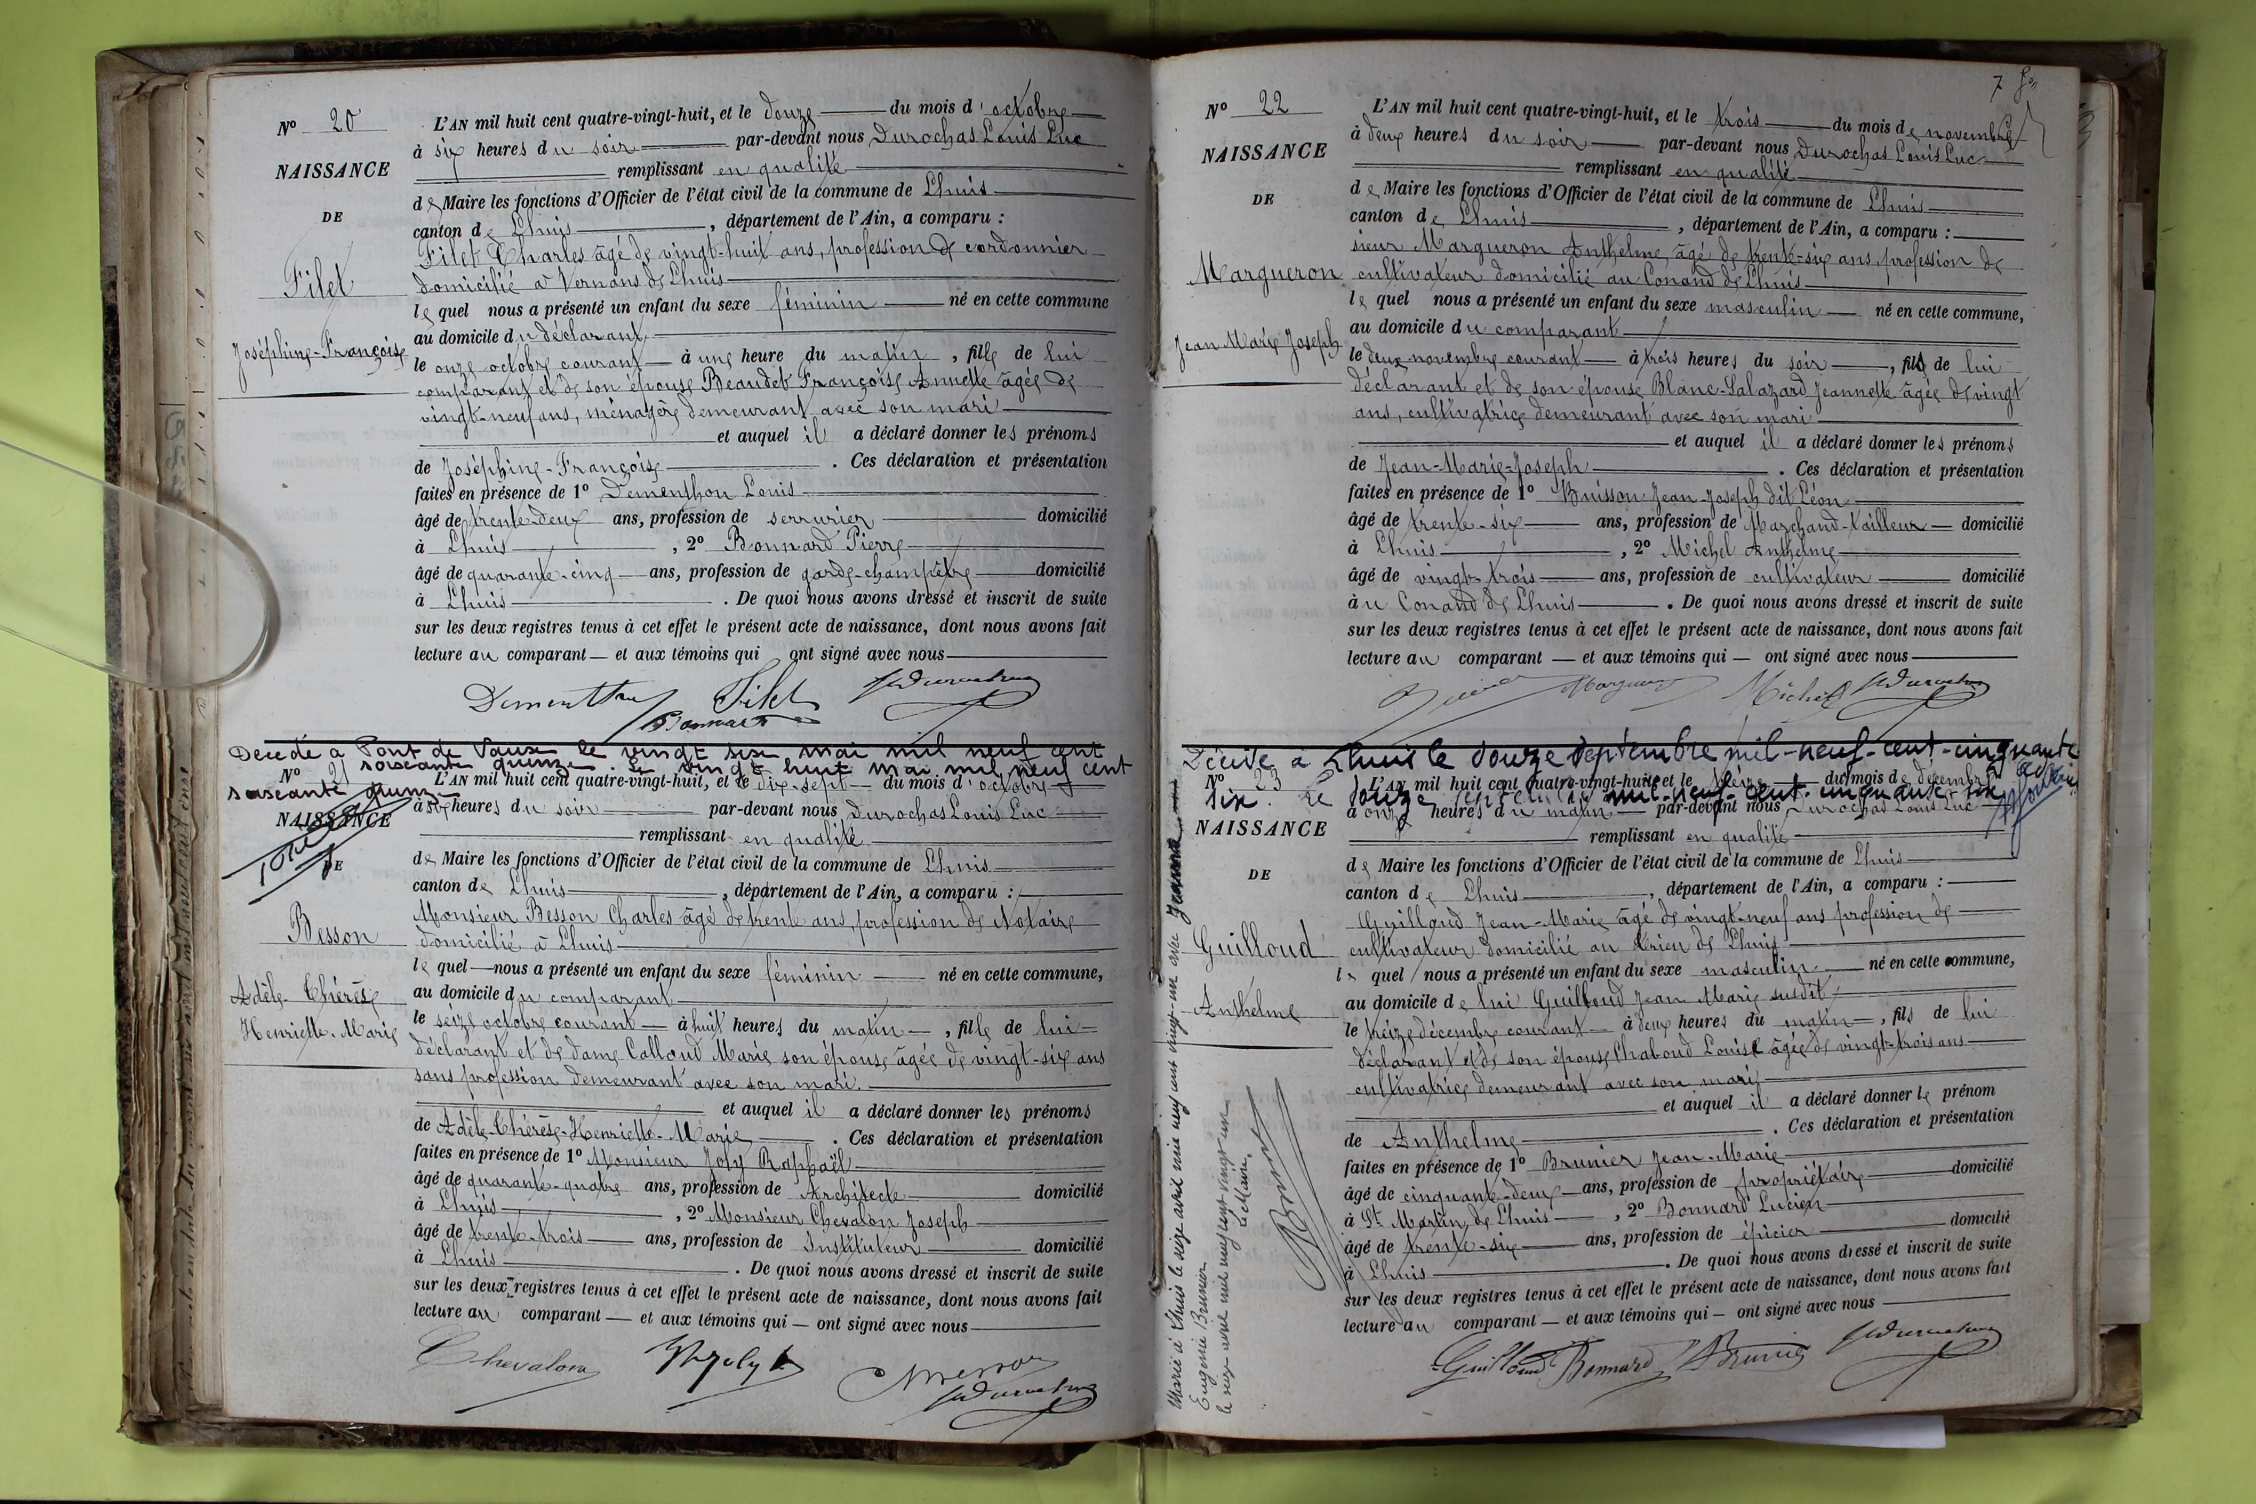 N° 20
NAISSANCE
DE
Filet
Joséphine-Françoise
L'AN mil huit cent quatre-vingt-huit, et le douze du mois d'octobre
à six heures du soir par-devant nous Durochas Louis Luc
remplissant en qualité
de Maire les fonctions d'Officier de l'état civil de la commune de Lhuis
canton de Lhuis, département de l'Ain, a comparu :
Filet Charles âgé de vingt-huit ans, profession de cordonnier
domicilié à Vernans de Lhuis
le quel nous a présenté un enfant du sexe féminin né en cette commune
au domicile du déclarant
le onze octobre courant à une heure du matin, fille de lui
comparant et de son épouse Beaudet Françoise Annette âgée de
vingt-neuf ans, ménagère demeurant avec son mari
et auquel il a déclaré donner les prénoms
de Joséphine-Françoise. Ces déclaration et présentation
faites en présence de 1° Dementhon Louis
âgé de trente-deux ans, profession de serrurier domicilié
à Lhuis, 2° Bonnard Pierre
âgé de quarante-cinq ans, profession de garde-champêtre domicilié
à Lhuis. De quoi nous avons dressé et inscrit de suite
sur les deux registres tenus à cet effet le présent acte de naissance, dont nous avons fait
lecture au comparant et aux témoins qui ont signé avec nous
Dementhon Filet
Bonnard
Décédé à Pont de Vaux le vingt six mai mil neuf cent
soixante quinze. Le vingt huit mai mil neuf cent
soixante quinze
N° 21
NAISSANCE
DE
Besson
Adèle-Thérèse
Henriette-Marie
L'AN mil huit cent quatre-vingt-huit, et le dix-sept du mois d'octobre
à six heures du soir par-devant nous Durochas Louis Luc
remplissant en qualité
de Maire les fonctions d'Officier de l'état civil de la commune de Lhuis
canton de Lhuis, département de l'Ain, a comparu :
Monsieur Besson Charles âgé de trente ans, profession de Notaire
domicilié à Lhuis
le quel nous a présenté un enfant du sexe féminin né en cette commune,
au domicile du comparant
le seize octobre courant à huit heures du matin, fille de lui
déclarant et de dame Calloud Marie son épouse âgée de vingt-six ans
sans profession demeurant avec son mari.
et auquel il a déclaré donner les prénoms
de Adèle-Thérèse-Henriette-Marie. Ces déclaration et présentation
faites en présence de 1° Monsieur Joly Raphaël
âgé de quarante-quatre ans, profession de Architecte domicilié
à Lhuis, 2° Monsieur Chevalon Joseph
âgé de trente-trois ans, profession de Instituteur domicilié
à Lhuis. De quoi nous avons dressé et inscrit de suite
sur les deux registres tenus à cet effet le présent acte de naissance, dont nous avons fait
lecture au comparant et aux témoins qui ont signé avec nous
Chevalon Joly
N° 22
NAISSANCE
DE
Margueron
Jean Marie Joseph
L'AN mil huit cent quatre-vingt-huit, et le trois du mois de novembre
à deux heures du soir par-devant nous Durochas Louis Luc
remplissant en qualité
de Maire les fonctions d'Officier de l'état civil de la commune de Lhuis
canton de Lhuis, département de l'Ain, a comparu :
sieur Margueron Anthelme âgé de trente-six ans, profession de
cultivateur domicilié au Conand de Lhuis
le quel nous a présenté un enfant du sexe masculin né en cette commune,
au domicile du comparant
le deux novembre courant à trois heures du soir, fils de lui
déclarant et de son épouse Blanc-Salazard Jeannette âgée de vingt
ans, cultivatrice demeurant avec son mari
et auquel il a déclaré donner les prénoms
de Jean-Marie-Joseph. Ces déclaration et présentation
faites en présence de 1° Buisson Jean-Joseph dit Léon
âgé de trente-six ans, profession de Marchand-tailleur domicilié
à Lhuis, 2° Michel Anthelme
âgé de vingt-trois ans, profession de cultivateur domicilié
à u Conand de Lhuis. De quoi nous avons dressé et inscrit de suite
sur les deux registres tenus à cet effet le présent acte de naissance, dont nous avons fait
lecture au comparant et aux témoins qui ont signé avec nous
Margueron Michel
Décédé à Lhuis le douze septembre mil-neuf-cent-cinquante
six. Le douze septembre mil-neuf-cent-cinquante six
N° 23
NAISSANCE
DE
Guilloud
Anthelme
L'AN mil huit cent quatre-vingt-huit et le treize du mois de décembre
à onze heures du matin par-devant nous Durochas Louis Luc
remplissant en qualité
de Maire les fonctions d'Officier de l'état civil de la commune de Lhuis
canton de Lhuis, département de l'Ain, a comparu :
Guilloud Jean-Marie âgé de vingt-neuf ans profession de
cultivateur domicilié au Crieu de Lhuis
le quel nous a présenté un enfant du sexe masculin né en cette commune,
au domicile de lui Guilloud Jean Marie susdit
le treize décembre courant à deux heures du matin, fils de lui
déclarant et de son épouse Chaboud Louise âgée de vingt-trois ans
cultivatrice demeurant avec son mari
et auquel il a déclaré donner le prénom
de Anthelme. Ces déclaration et présentation
faites en présence de 1° Brunier Jean-Marie
âgé de cinquante-deux ans, profession de propriétaire domicilié
à St Martin de Lhuis, 2° Bonnard Lucien
âgé de trente-six ans, profession de épicier domicilié
à Lhuis. De quoi nous avons dressé et inscrit de suite
sur les deux registres tenus à cet effet le présent acte de naissance, dont nous avons fait
lecture au comparant et aux témoins qui ont signé avec nous
Guilloud Bonnard Brunier
Marié à Lhuis le seize avril mil neuf cent vingt-un avec Jeanne
Eugénie Brunier
le seize avril mil neuf cent vingt-un
Le Maire,